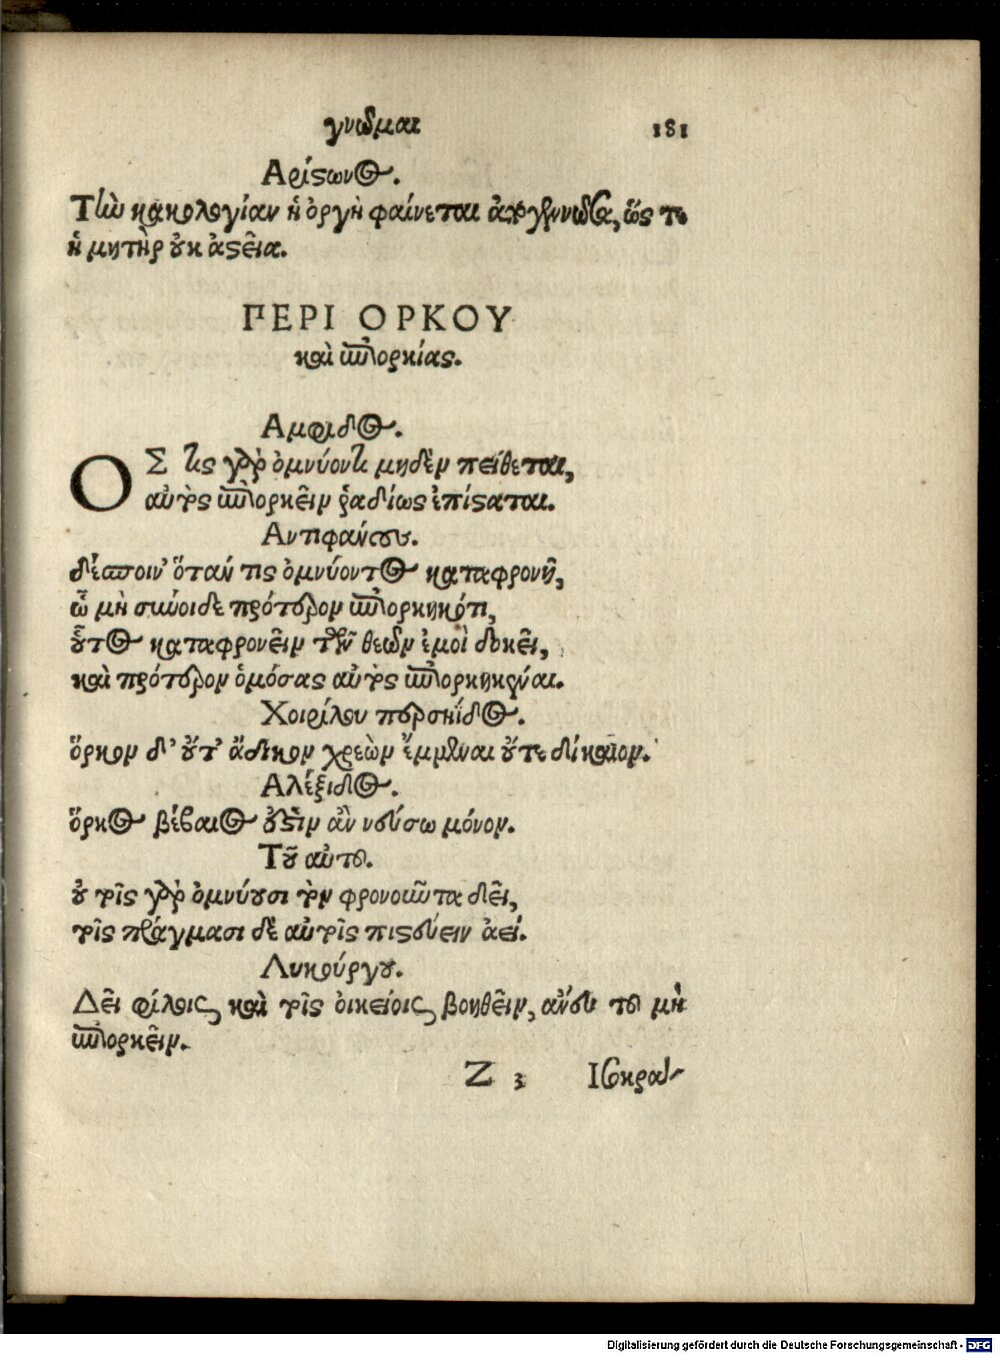 γνῶμαι 181
Ἀρίστωνος.
Τὴν κακολογίαν ἡ ὀργὴ φαίνεται ἀπογεννῶσα, ὥστε
ἡ μητὴρ οὐκ ἀστεῖα.
ΠΕΡΙ ΟΡΚΟΥ
καὶ ἐπιορκίας.
Αμφιδος.
ΟΣτις γὰρ ὀμνύοντι μηδὲν πείθεται,
αὐτὸς ἐπιορκεῖν ῥᾳδίως ἐπίσταται.
Αντιφάνους.
δέσποιν' ὅταν τις ὀμνύοντος καταφρονῇ,
ᾧ μὴ σύνοιδε πρότερον ἐπιορκηκότι,
οὗτος καταφρονεῖν τῶν θεῶν ἐμοὶ δοκεῖ,
καὶ πρότερον ὀμόσας αὐτὸς ἐπιορκηκέναι.
Χοιρίλου περσηΐδος.
ὅρκον δ' οὔτ' ἄδικον χρεὼν ἔμμεναι οὔτε δίκαιον.
Αλέξιδος.
ὅρκος βέβαιός ἐστιν ἂν νεύσω μόνον.
Τοῦ αὐτοῦ.
οὐ τοῖς γὰρ ὀμνύουσι τὸν φρονοῦντα δεῖ,
τοῖς πράγμασι δὲ αὐτοῖς πιστεύειν ἀεί.
Λυκούργου.
Δεῖ φίλοις καὶ τοῖς οἰκείοις βοηθεῖν, ἄνευ τοῦ μὴ
ἐπιορκεῖν.
Z 3 Ισοκρά-
Digitalisierung gefördert durch die Deutsche Forschungsgemeinschaft - DFG